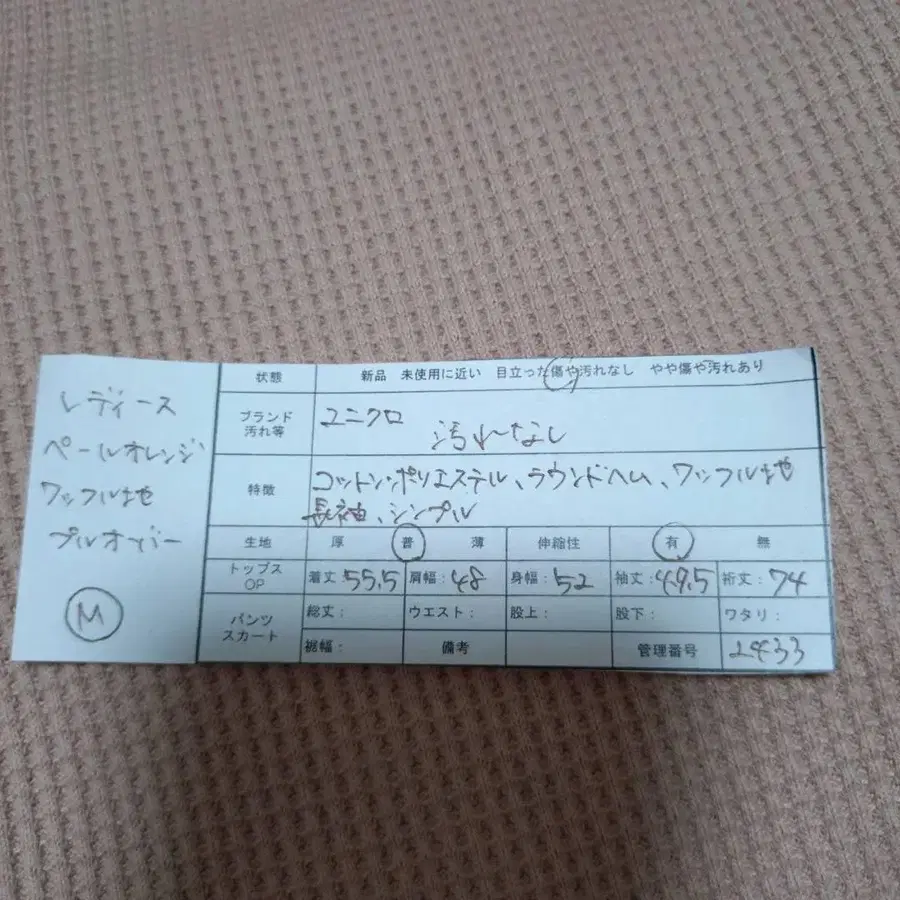 レディース
ペールオレンジ
ワッフル地
プルオーバー
M
状態 新品 未使用に近い 目立った傷や汚れなし やや傷や汚れあり
ブランド 汚れ等 ユニクロ 汚れなし
特徴 コットン・ポリエステル、ラウンドヘム、ワッフル地
長袖、シンプル
生地 厚 普 薄 伸縮性 有 無
トップス OP 着丈:55.5 肩幅:48 身幅:52 袖丈:49.5 裄丈:74
パンツ スカート 総丈: ウエスト: 股上: 股下: ワタリ:
裾幅: 備考 管理番号 2433